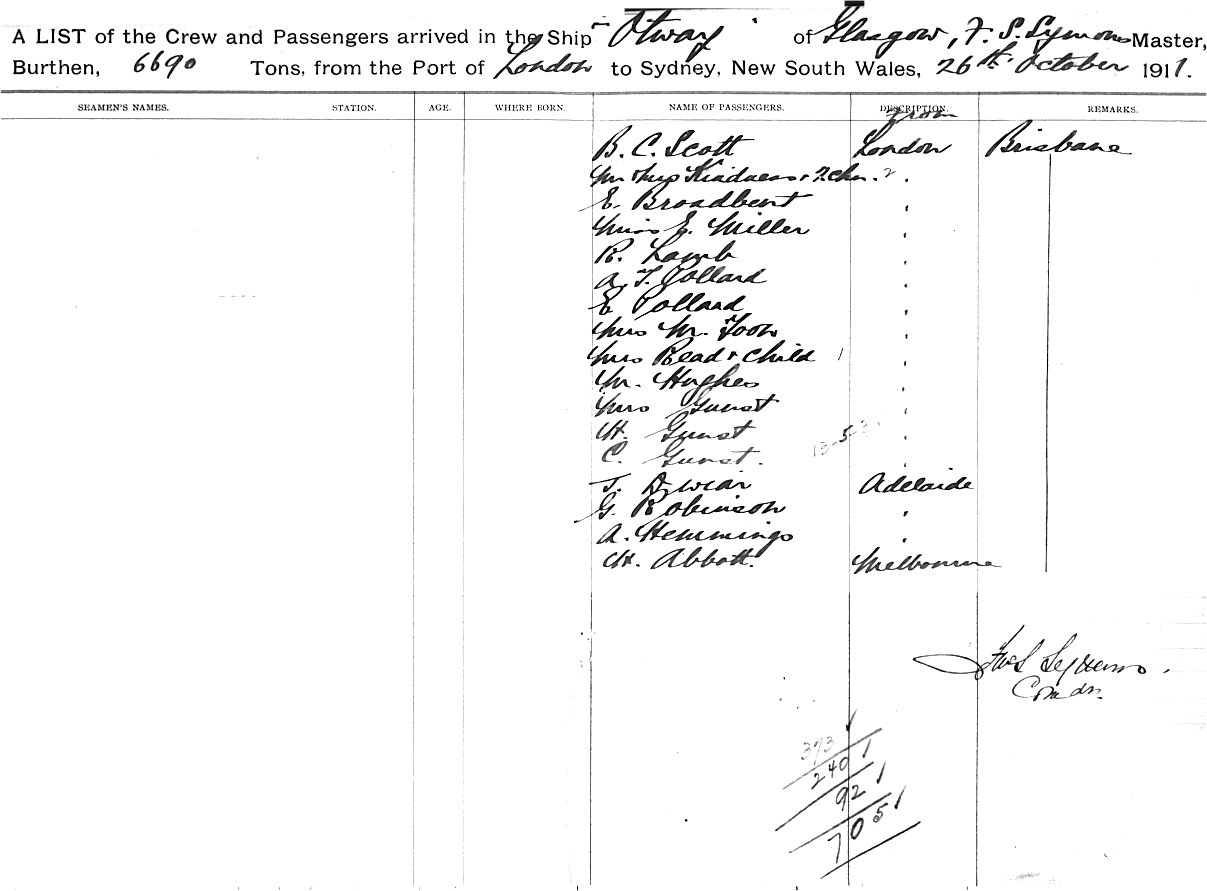 A LIST of the Crew and Passengers arrived in the Ship "Otway" of Glasgow, F. S. Symons Master,
Burthen, 6690 Tons, from the Port of London to Sydney, New South Wales, 26th October 1911.
SEAMEN'S NAMES. STATION. AGE. WHERE BORN. NAME OF PASSENGERS. DESCRIPTION. REMARKS.
from
B. C. Scott London Brisbane
Mr & Mrs Kindness & 2 chn. 2 "
E. Broadbent "
Miss E. Miller "
R. Lamb "
A. T. Pollard "
E Pollard "
Mrs M. Toon "
Mrs Read & Child 1 "
M. Hughes "
Mrs Gunst "
H. Gunst "
13-5-3
C. Gunst. "
J. Dwiar Adelaide
G. Robinson "
A. Hemmings "
H. Abbott. Melbourne
Symons.
Comdr.
373
240 /
92 /
705 /